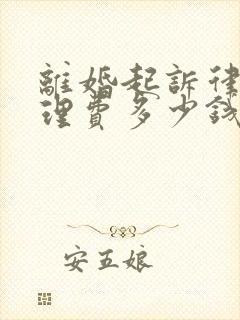 離婚起訴律
理費多少錢
安五娘